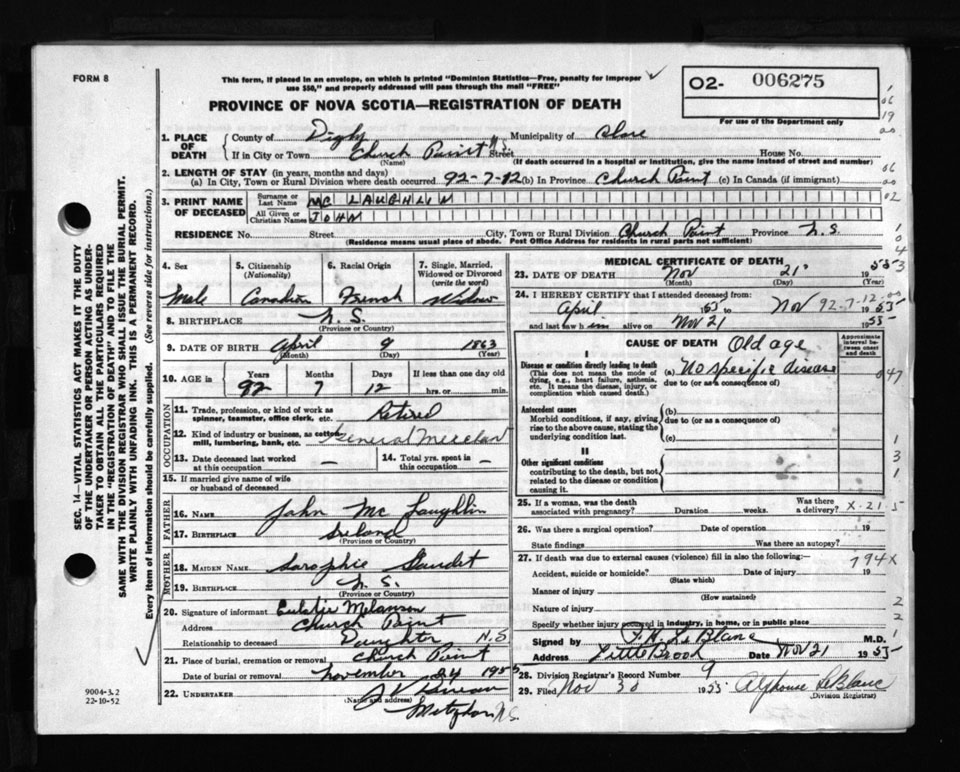 FORM 8
This form, if placed in an envelope, on which is printed "Dominion Statistics—Free, penalty for improper
use $50," and properly addressed will pass through the mail "FREE"
O2- 006275
PROVINCE OF NOVA SCOTIA—REGISTRATION OF DEATH
For use of the Department only
1. PLACE OF DEATH
County of Digby Municipality of Clare
If in City or Town Church Point N.S. Street House No.
(Name) (If death occurred in a hospital or institution, give the name instead of street and number)
2. LENGTH OF STAY (in years, months and days)
(a) In City, Town or Rural Division where death occurred 92-7-12 (b) In Province Church Point (c) In Canada (if immigrant)
3. PRINT NAME OF DECEASED
Surname or Last Name MC LAUGHLIN
All Given or Christian Names JOHN
RESIDENCE No. Street City, Town or Rural Division Church Point Province N.S.
(Residence means usual place of abode. Post Office Address for residents in rural parts not sufficient)
4. Sex Male
5. Citizenship (Nationality) Canadian
6. Racial Origin French
7. Single, Married, Widowed or Divorced (write the word) Widow
8. BIRTHPLACE N.S.
(Province or Country)
9. DATE OF BIRTH April 9 1863
(Month) (Day) (Year)
10. AGE in Years Months Days If less than one day old
92 7 12 hrs. or min.
OCCUPATION
11. Trade, profession, or kind of work as spinner, teamster, office clerk, etc. Retired
12. Kind of industry or business, as cotton mill, lumbering, bank, etc. General Merchant
13. Date deceased last worked at this occupation —
14. Total yrs. spent in this occupation —
15. If married give name of wife or husband of deceased
FATHER
16. NAME John Mc Laughlin
17. BIRTHPLACE Ireland
(Province or Country)
MOTHER
18. MAIDEN NAME Saraphie Gaudet
19. BIRTHPLACE N.S.
(Province or Country)
20. Signature of informant Eulalie Melanson
Address Church Point
Relationship to deceased Daughter N.S
21. Place of burial, cremation or removal Church Point
Date of burial or removal November 24 1955
22. UNDERTAKER
(Name and address)
Meteghan N.S.
MEDICAL CERTIFICATE OF DEATH
23. DATE OF DEATH Nov 21 1955
(Month) (Day)
24. I HEREBY CERTIFY that I attended deceased from:
April 1955 to Nov 1955
92-7-12
and last saw him alive on Nov 21 1955
CAUSE OF DEATH Old age
Approximate interval between onset and death
I
Disease or condition directly leading to death
(This does not mean the mode of dying, e.g., heart failure, asthenia, etc. It means the disease, injury, or complication which caused death.)
(a) No specific disease
due to (or as a consequence of)
Antecedent causes
Morbid conditions, if any, giving rise to the above cause, stating the underlying condition last.
(b)
due to (or as a consequence of)
(c)
II
Other significant conditions
contributing to the death, but not related to the disease or condition causing it.
25. If a woman, was the death associated with pregnancy? Duration weeks. Was there a delivery? X-21-5
26. Was there a surgical operation? Date of operation 19
State findings Was there an autopsy?
27. If death was due to external causes (violence) fill in also the following:— 794X
Accident, suicide or homicide? Date of injury 19
(State which)
Manner of injury
(How sustained)
Nature of injury
Specify whether injury occurred in industry, in home, or in public place
Signed by LeBlanc M.D.
Address Little Brook Date Nov 21 1955
28. Division Registrar's Record Number 9
29. Filed Nov 30 1955 Alphonse LeBlanc
(Division Registrar)
SEC. 14—VITAL STATISTICS ACT MAKES IT THE DUTY
OF THE UNDERTAKER OR PERSON ACTING AS UNDER-
TAKER TO OBTAIN ALL THE PARTICULARS REQUIRED
IN THE "REGISTRATION OF DEATH" AND TO FILE THE
SAME WITH THE DIVISION REGISTRAR WHO SHALL ISSUE THE BURIAL PERMIT.
WRITE PLAINLY WITH UNFADING INK. THIS IS A PERMANENT RECORD.
Every item of information should be carefully supplied. (See reverse side for instructions.)
9004-3.2
22-10-52